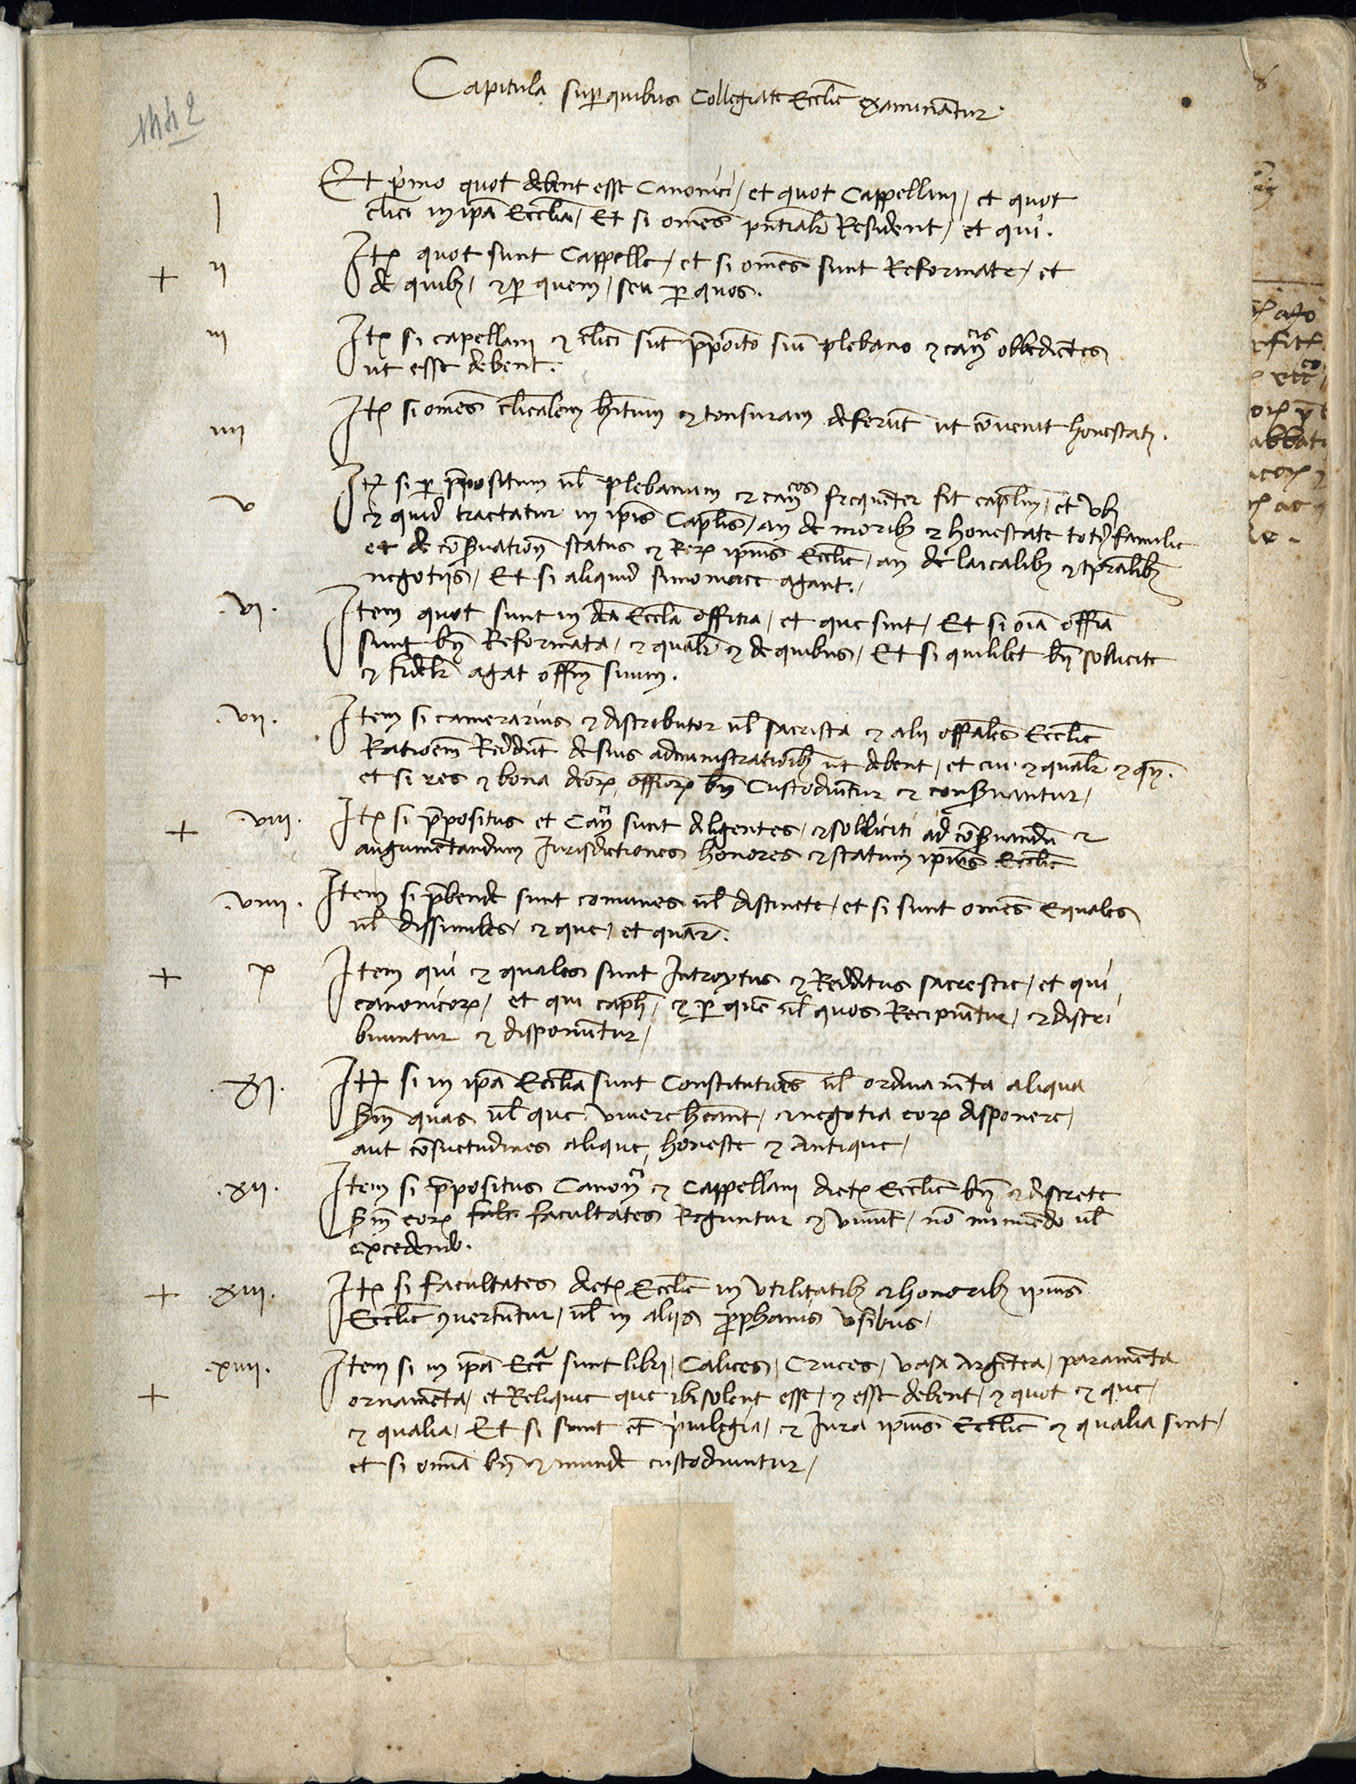 Capitula sup quibus Collegiate Ecclie examinātur.
1442
I
Et primo quot debent esse Canonici / et quot Cappellani / et quot
clici in ipā Ecclīa / Et si omēs pntialr Resident / et qui.
+ ii
Itē quot sunt Cappelle / et si omēs sunt Reformate / et
de quibz / et p quem / seu p quos.
iii
Itē si capellani et clici sūt ppoito siū plebano et cancis obbedientes
ut esse debent.
iiii
Itē si omēs clicalem hitum et tonsuram deferūt ut cōvenit honestati.
v
Itē si p ppositum ul plebanum et cancos frequēter fit caplm / et ubi
et quid tractatur in ipis Caplis / an de moribz et honestate totiꝰ familie
et de cōsvatione status et Rerꝝ ipius Ecclie / an de laicalibz et tpralibz
negotijs / Et si aliquid simoniace agant. /
.vi.
Item quot sunt in dcā Ecclā offitia / et que sint / Et si oīa offīa
sunt bn Reformata / et qualr et de quibus / Et si quilibet bn sollicite
et fidelr agat offm suum.
.vii.
Item si camerarius et distributor ul sacrista et alij offales Ecclie
Rationem Reddūt de suis administrationibz ut debent / et cui et qualr et qn.
et si res et bona dcorꝝ offiorꝝ bn Custodiūtur et consvantur /
+ viii.
Itē si ppositus et Canci sunt diligentes / et solliciti ad cōsvandū et
augumentandum Jurisdictiones honores et statum ipius Ecclie
.viiii.
Item si pbende sunt comunes ul distincte / et si sunt omēs Equales
ul dissimiles / et que / et quare.
+ x
Item qui et quales sunt Introytus et Redditus sacrestie / et qui
canonicorꝝ / et qui capli / et p quē ul quos Recipiūtur / et distri
buuntur et disponūtur /
.XI.
Itē si in ipā Ecclīa sunt Constitutiōes ul ordinamēta aliqua
scdm quas ul que vivere hēant / et negotia eorꝝ disponere /
aut cōsuetudines alique honeste et Antique /
.xii.
Item si ppositus Canonci et Cappellani dicte Ecclie bn et discrete
scdm eorꝝ facultates Reguntur et vivūt / nō minuēdo ul
excedendo.
+ .xiii.
Itē si facultates dicte Ecclie in utilitatibz et honoribz ipius
Ecclie cōvertūtur / ul in alijs pphanis usibus /
+ .xiiii.
Item si in ipā Ecca sunt libri / Calices / Cruces / vasa argētea / paramēta
ornamēta / et Reliquie que ibi solent esse / et esse debent / et quot et que /
et qualia / Et si sunt et privilegia / et Jura ipius Ecclie et qualia sint /
et si omīa bn et munde custodiuntur /